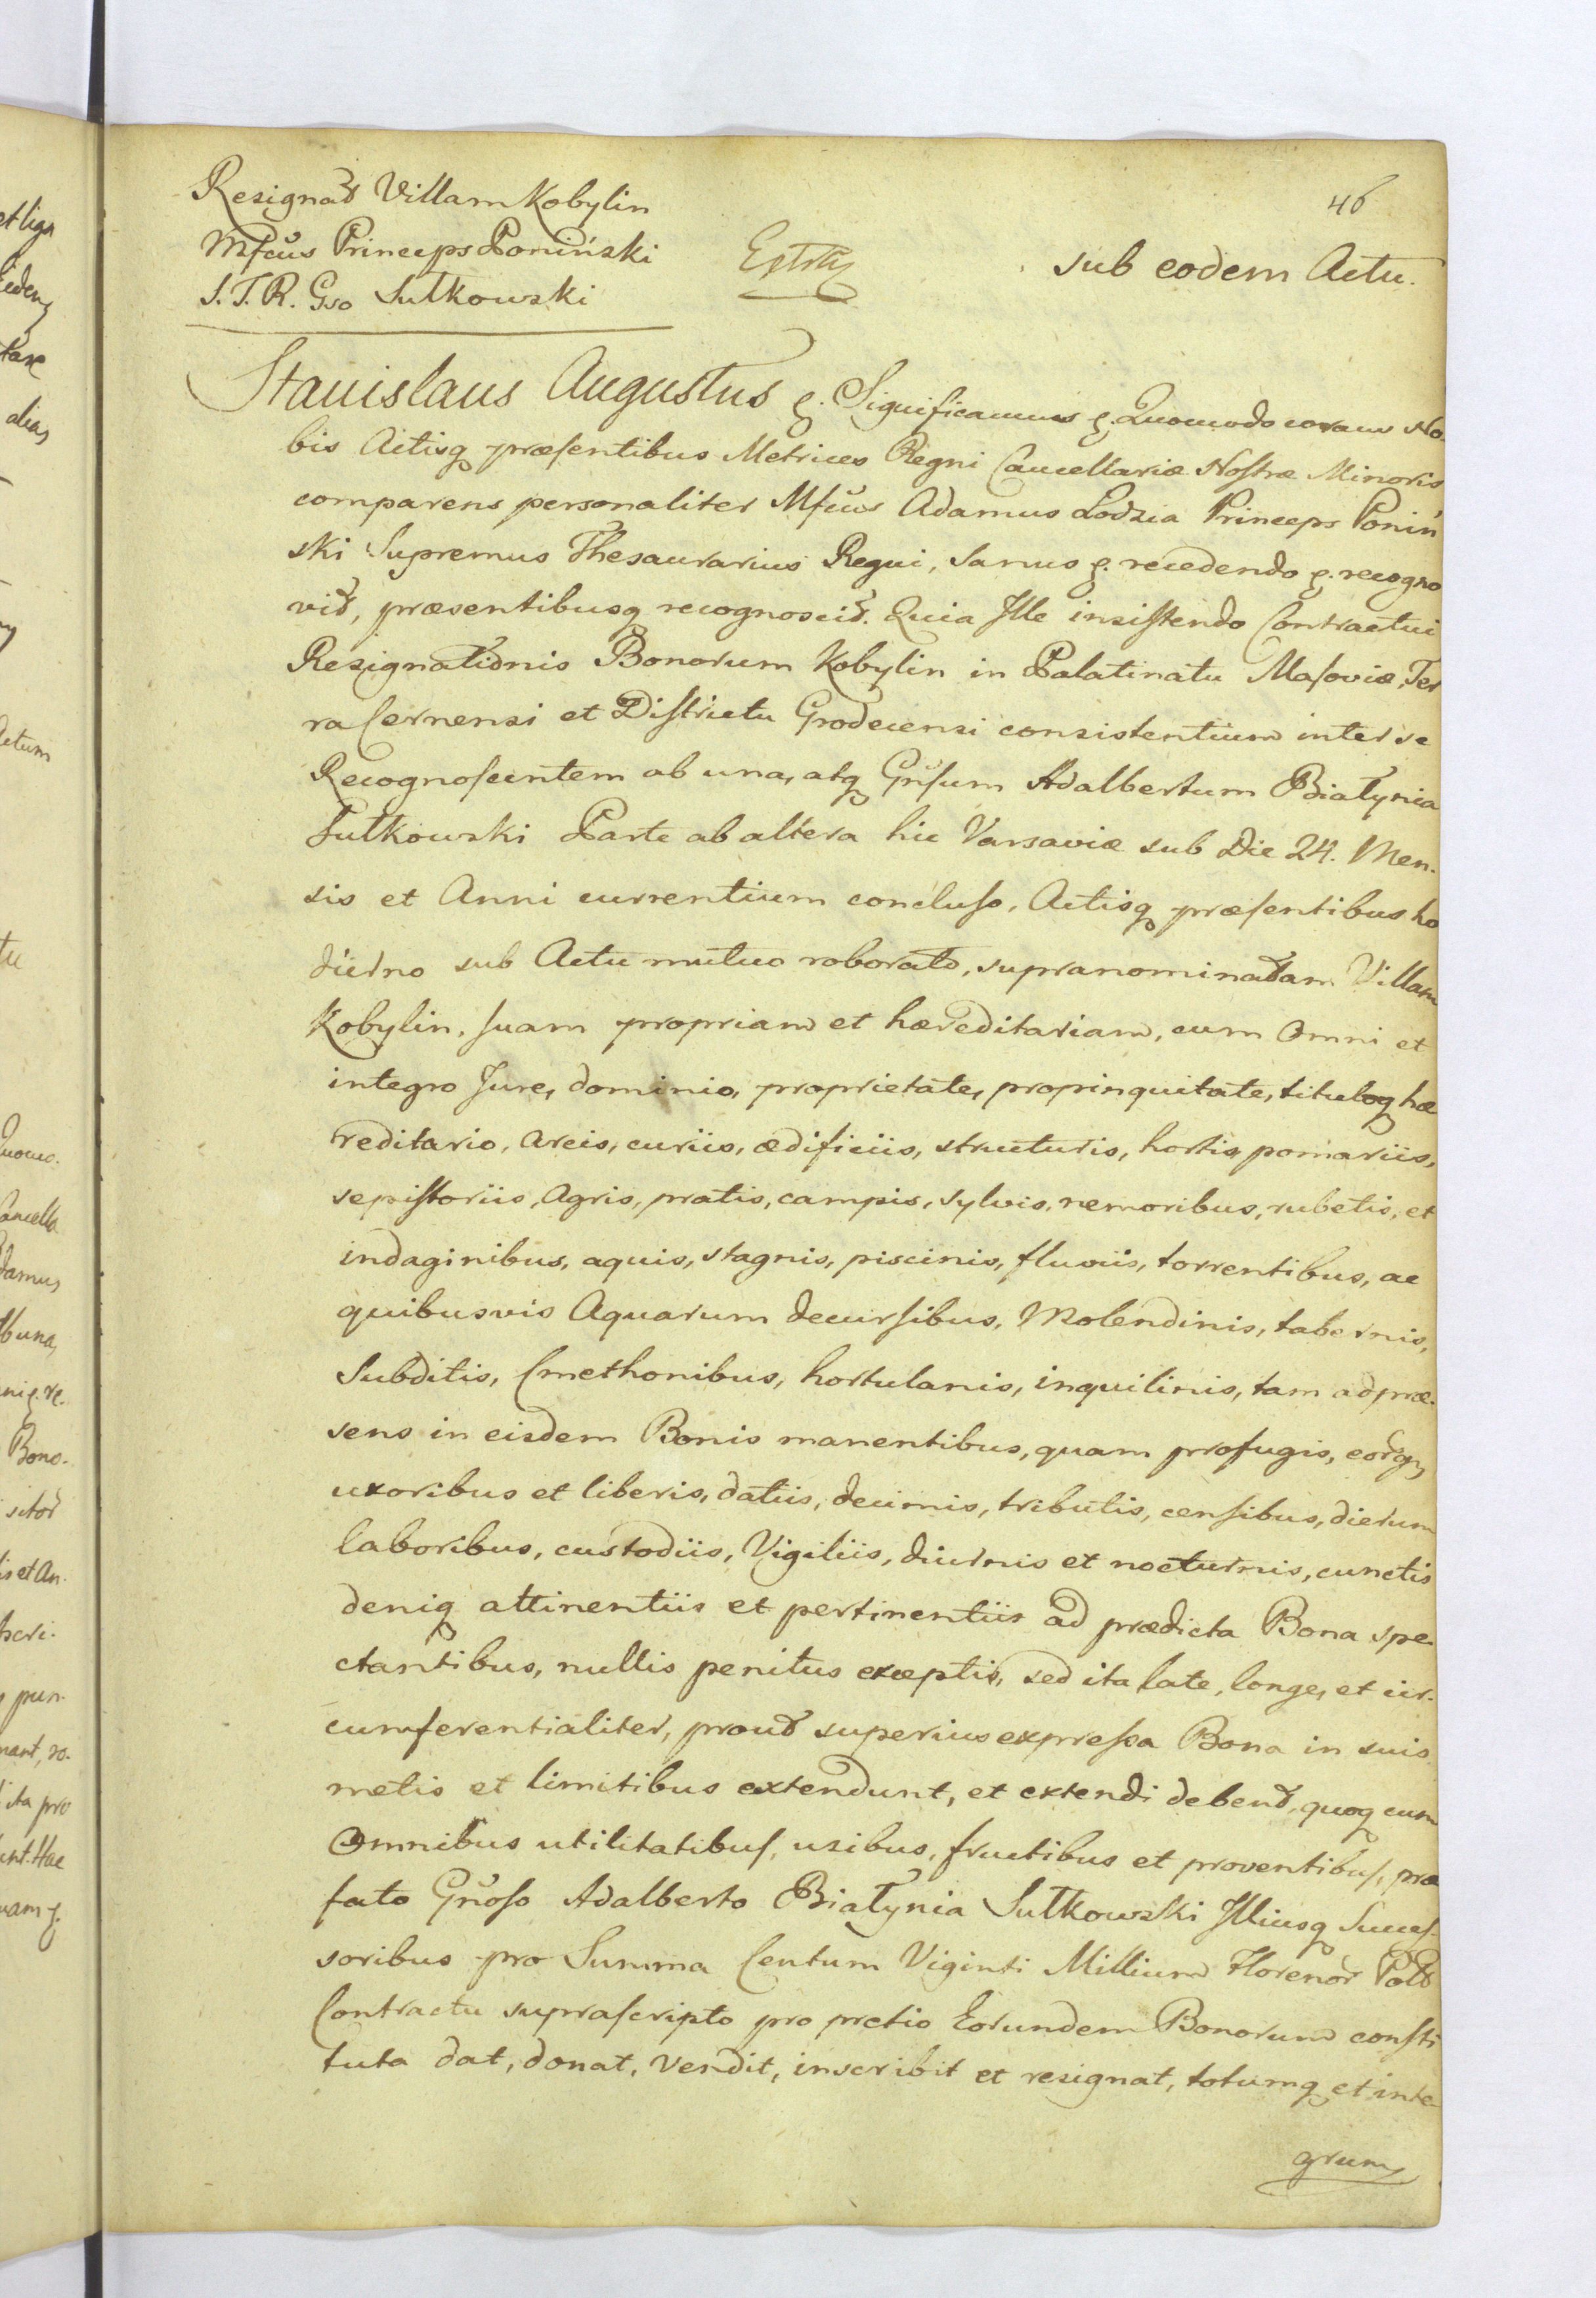 46
Resignat Villam Kobylin
Mfcus Princeps Poniński
S. T. R. Gso Sułkowski
Extr
sub eodem Actu.
Stanislaus Augustus &. Significamus &. Quomodo coram No-
bis Actisq præsentibus Metrices Regni Cancellariæ Nostræ Minoris
comparens personaliter Mfcus Adamus Lodzia Princeps Poniń
ski Supremus Thesaurarius Regni, Sanus &. recedendo &. recogno
vit, præsentibusq recognoscit. Quia Ille insistendo Contractui
Resignationis Bonorum Kobylin in Palatinatu Masoviæ, Ter
ra Cernensi et Districtu Grodecensi consistentium inter se
Recognoscentem ab una, atq Gñsum Adalbertum Białynia
Sułkowski Parte ab altera hic Varsaviæ sub Die 24. Men-
sis et Anni currentium concluso, Actisq præsentibus ho
dierno sub Actu mutuo roborato, supranominatam Villam
Kobylin, suam propriam et hæreditariam, cum Omni et
integro Jure, dominio, proprietate, propinquitate, tituloq hæ
reditario, Areis, curiis, ædificiis, structuris, hortis, pomariis,
sepistoriis, Agris, pratis, campis, sylvis, nemoribus, rubetis, et
indaginibus, aquis, stagnis, piscinis, fluviis, torrentibus, ac
quibusvis Aquarum decursibus, Molendinis, tabernis,
Subditis, Cmethonibus, hortulanis, inquilinis, tam ad præ-
sens in eisdem Bonis manentibus, quam profugis, eorq,
uxoribus et liberis, datiis, decimis, tributis, censibus, dierum
laboribus, custodiis, Vigiliis, diurnis et nocturnis, cunctis
deniq attinentiis et pertinentiis ad prædicta Bona spe-
ctantibus, nullis penitus exceptis, sed ita late, longe, et cir-
cumferentialiter, prout superius expressa Bona in suis
metis et limitibus extendunt, et extendi debent, quoq cum
Omnibus utilitatibus, usibus, fructibus et proventibus, præ
fato Gñoso Adalberto Białynia Sułkowski Illiusq Succes-
soribus pro Summa Centum Viginti Millium Florenor Polo
Contractu suprascripto pro pretio Eorundem Bonorum consti
tuta dat, donat, vendit, inscribit et resignat, totumq et inte-
grum